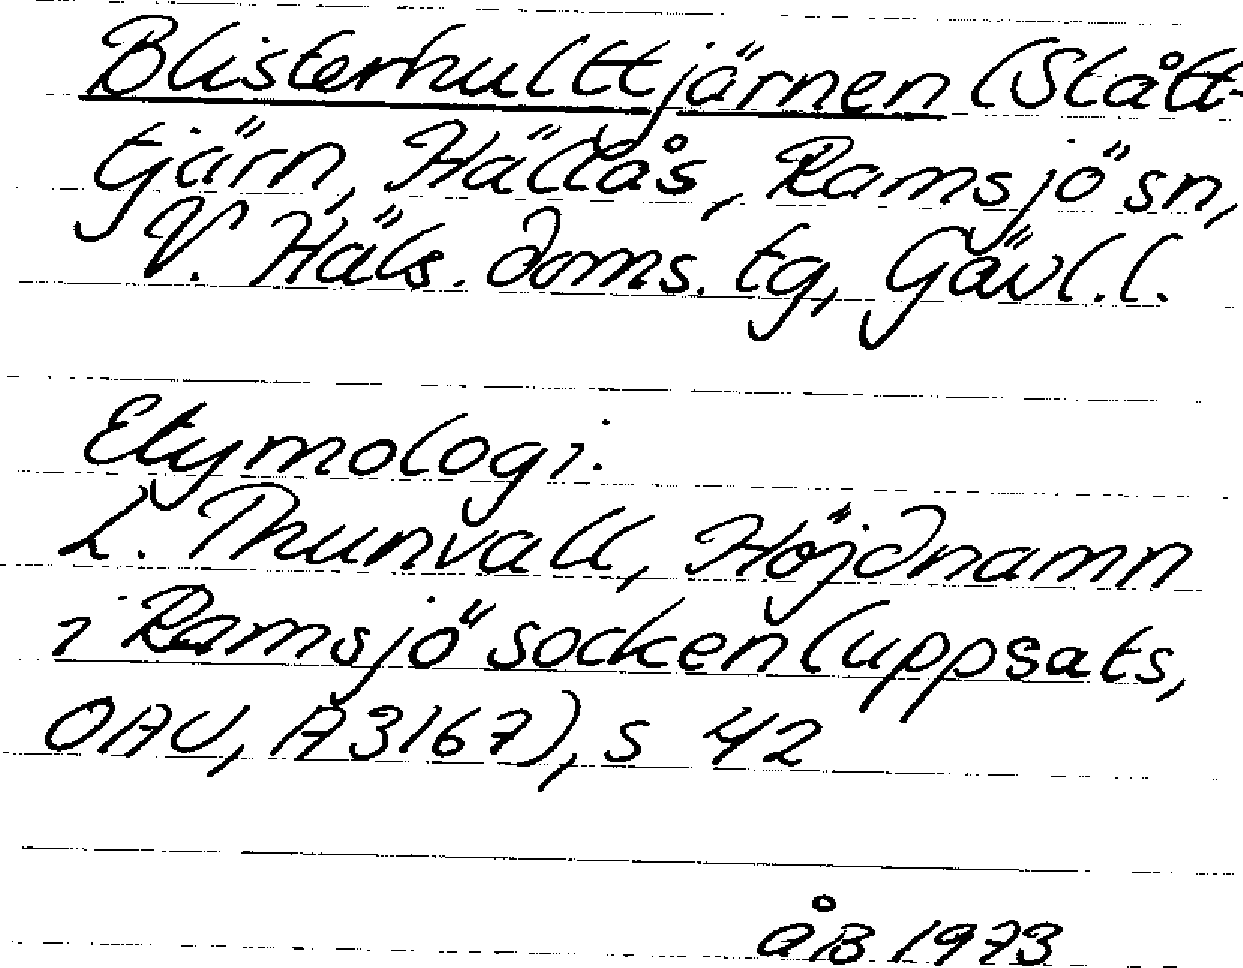 Blisterhulttjärnen (Slått-
tjärn, Hällås, Ramsjö sn,
V. Häls. doms. tg, Gävl. l.
Etymologi.
L. Thunvall, Höjdnamn
i Ramsjö socken (uppsats,
OAU, A3167), s 42
åB 1973